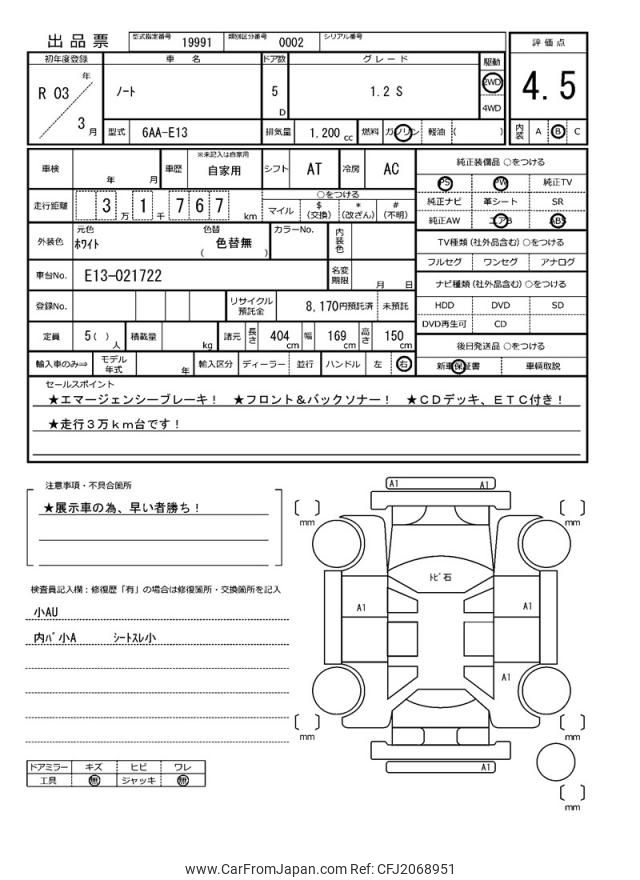 出品票 型式指定番号 19991 類別区分番号 0002 シリアル番号
評価点
4.5
内装 A B C
初年度登録 車名 ドア数 グレード 駆動
R 03 年 3 月 ノート 5 D 1.2 S 2WD 4WD
型式 6AA-E13 排気量 1,200 cc 燃料 ガソリン 軽油 ( )
車検 年 月 車歴 ※未記入は自家用 自家用 シフト AT 冷房 AC
走行距離 3 万 1 千 7 6 7 km
○をつける
マイル $ (交換) * (改ざん) # (不明)
外装色 元色 ホワイト 色替 色替無 ( ) カラーNo. 内装色
車台No. E13-021722 名変期限 月 日
登録No. リサイクル預託金 8,170円預託済 未預託
定員 5( ) 人 積載量 kg 諸元 長さ 404 cm 幅 169 cm 高さ 150 cm
輸入車のみ⇒ モデル年式 年 輸入区分 ディーラー 並行 ハンドル 左 右
純正装備品 ○をつける
PS PW 純正TV
純正ナビ 革シート SR
純正AW エアB ABS
TV種類(社外品含む)○をつける
フルセグ ワンセグ アナログ
ナビ種類(社外品含む)○をつける
HDD DVD SD
DVD再生可 CD
後日発送品 ○をつける
新車保証書 車輌取説
セールスポイント
★エマージェンシーブレーキ! ★フロント&バックソナー! ★CDデッキ、ETC付き!
★走行3万km台です!
注意事項・不具合箇所
★展示車の為、早い者勝ち!
検査員記入欄:修復歴「有」の場合は修復箇所・交換箇所を記入
小AU
内パ小A シートスレ小
ドアミラー キズ ヒビ ワレ
工具 無 ジャッキ 無
A1 A1
mm mm
トビ石
A1 A1
A1
mm mm
A1
mm
www.CarFromJapan.com Ref: CFJ2068951